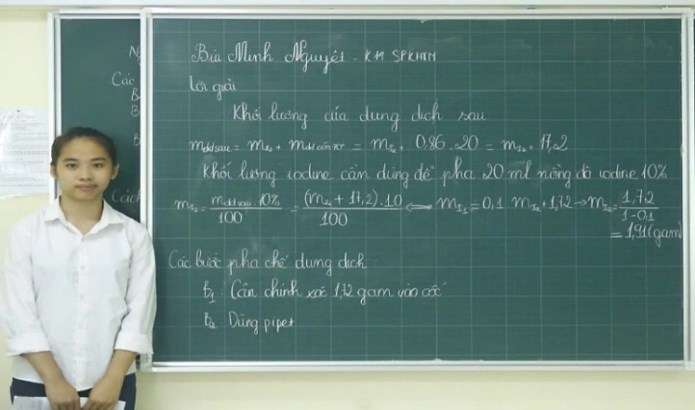 Bùi Minh Nguyệt - K44 SPKHTN
Lời giải
Khối lượng của dung dịch sau
m = m + m = m + 0,86.20 = m + 17,2
Khối lượng iodine cần dùng để pha 20 ml nồng độ iodine 10%
m = m .10% / 100 = (m + 17,2).10 / 100 ⟺ m = 0,1 m + 1,72 → m = 1,72 / 1-0,1
= 1,91 (gam)
Các bước pha chế dung dịch
B1: Cân chính xác 1,72 gam vào cốc
B2: Dùng pipet
Các
B
B
Cách